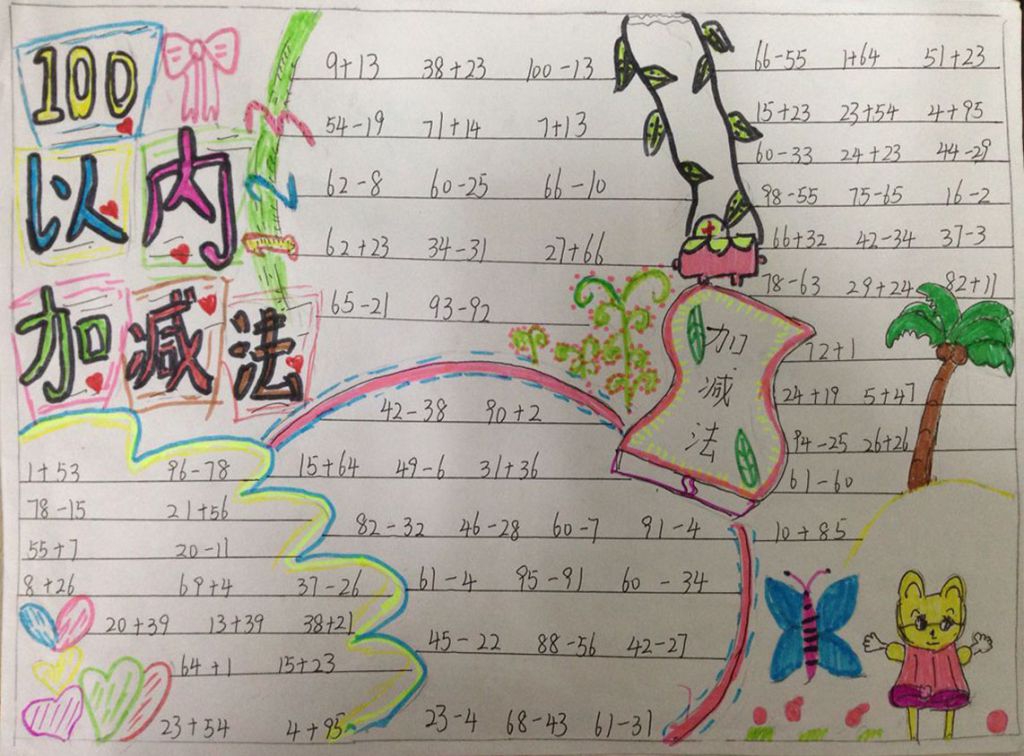 100
以内
加减法
9+13 38+23 100-13
54-19 71+14 7+13
62-8 60-25 66-10
62+23 34-31 27+66
65-21 93-92
66-55 1+64 51+23
15+23 23+54 4+95
60-33 24+23 44-29
98-55 75-65 16-2
66+32 42-34 37-3
78-63 29+24 82+11
72+1
24+19 5+47
94-25 26+26
61-60
10+85
加
减
法
42-38 90+2
15+64 49-6 31+36
82-32 46-28 60-7 91-4
61-4 95-91 60-34
45-22 88-56 42-27
23-4 68-43 61-31
1+53 96-78
78-15 21+56
55+7 20-11
8+26 69+4 37-26
20+39 13+39 38+21
64+1 15+23
23+54 4+95